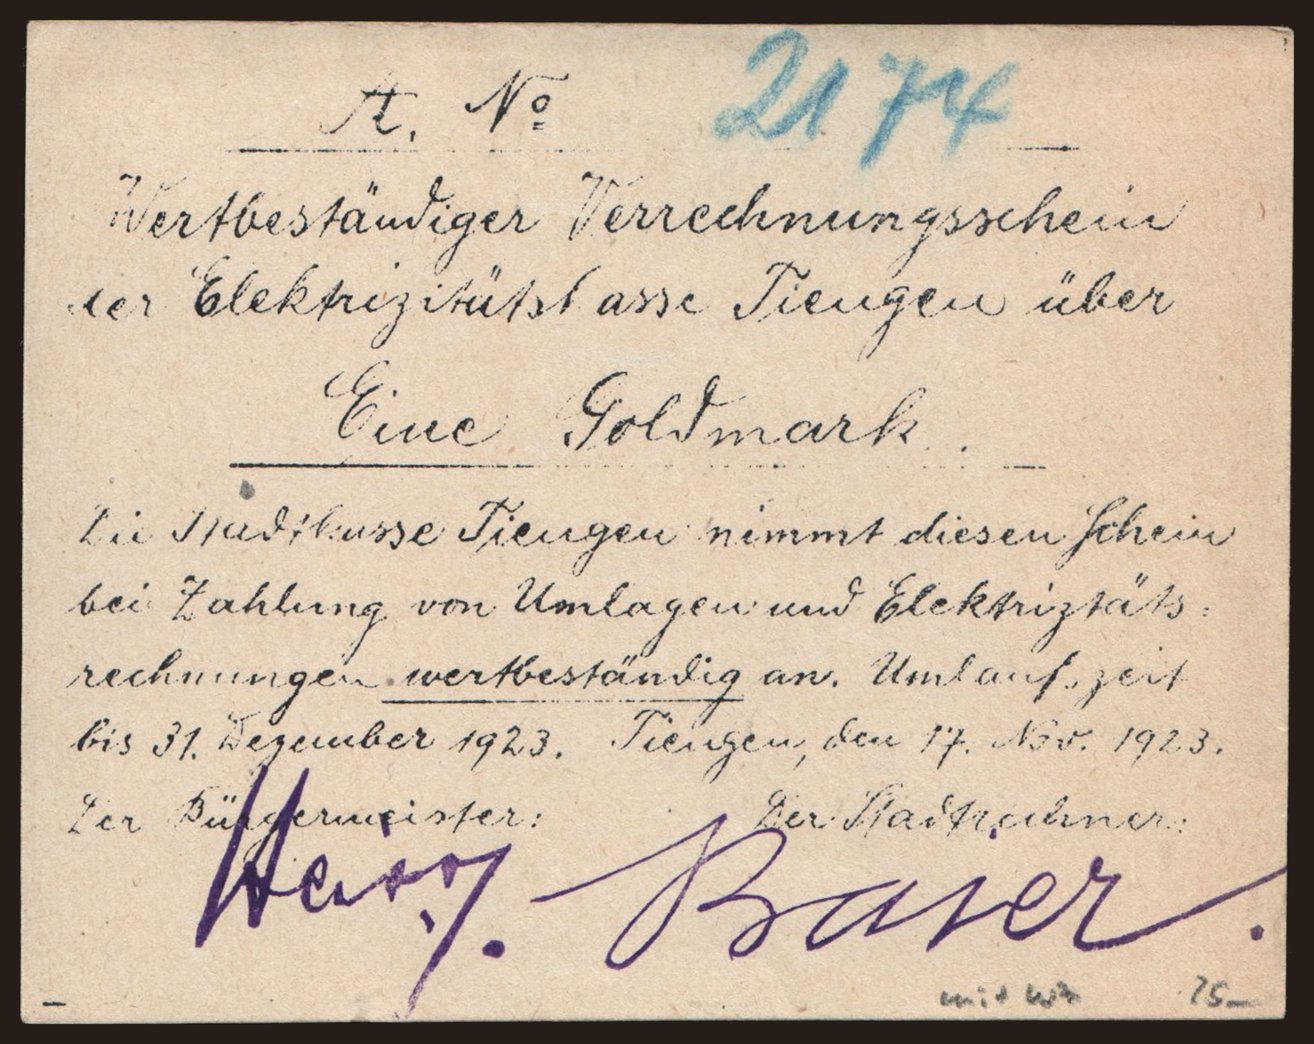 A. No 2174
Wertbeständiger Verrechnungsschein
der Elektrizitätskasse Tiengen über
Eine Goldmark.
Die Stadtkasse Tiengen nimmt diesen Schein
bei Zahlung von Umlagen und Elektriztäts-
rechnungen wertbeständig an. Umlaufszeit
bis 31. Dezember 1923. Tiengen, den 17. Nov. 1923.
Der Bürgermeister: Der Stadtrechner:
Baier.
mit 75-